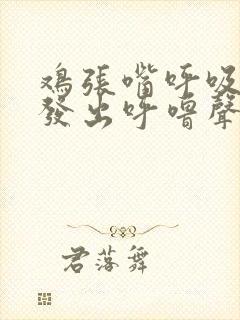 鸡張嘴呼吸
發出呼噜聲
君落舞